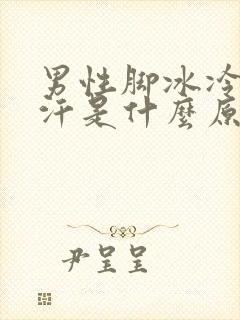 男性脚冰冷
汗是什麼原
尹呈呈